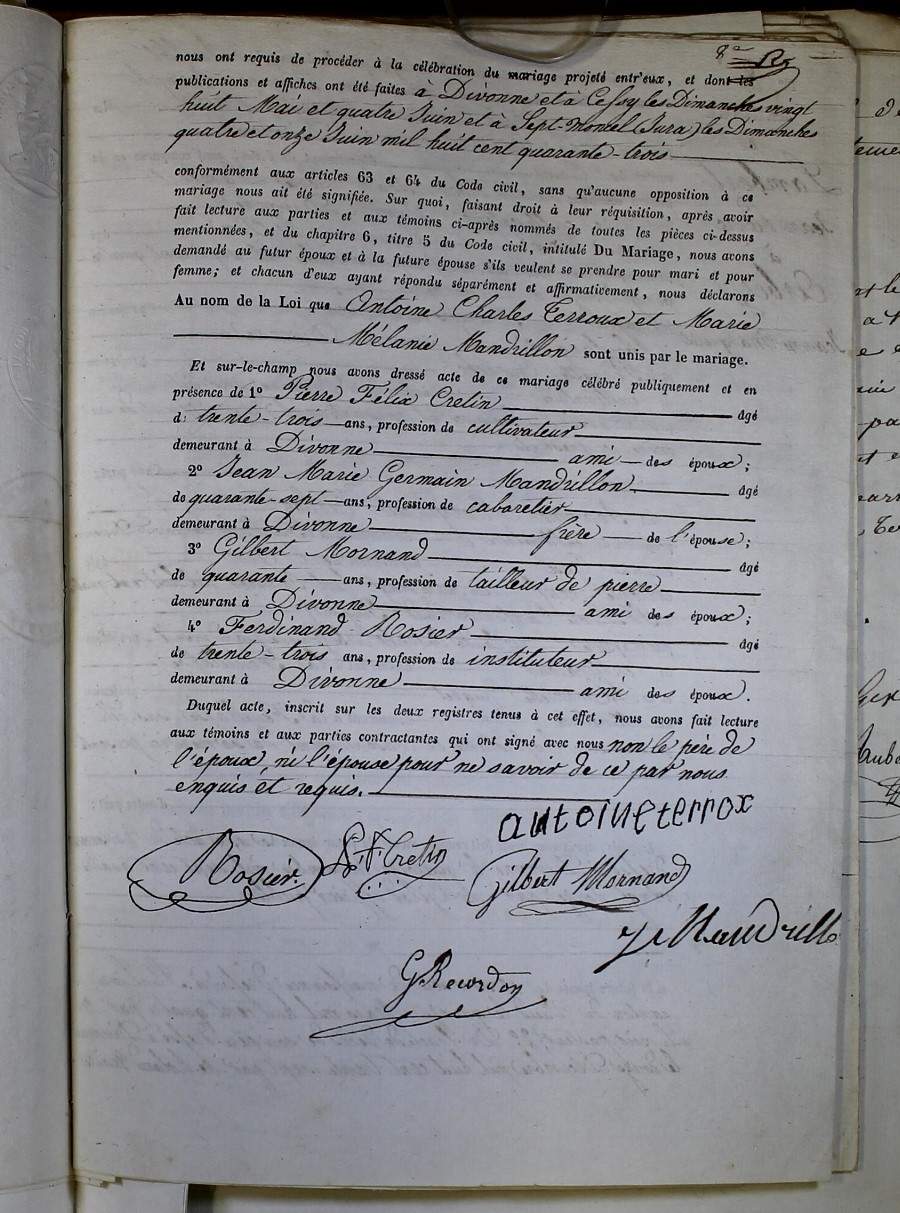 8e
nous ont requis de procéder à la célébration du mariage projeté entr'eux, et dont les
publications et affiches ont été faites à Divonne et à Cessy les Dimanches vingt
huit Mai et quatre Juin et à Sept-moncel (Jura) les Dimanches
quatre et onze Juin mil huit cent quarante-trois
conformément aux articles 63 et 64 du Code civil, sans qu'aucune opposition à ce
mariage nous ait été signifiée. Sur quoi, faisant droit à leur réquisition, après avoir
fait lecture aux parties et aux témoins ci-après nommés de toutes les pièces ci-dessus
mentionnées, et du chapitre 6, titre 5 du Code civil, intitulé Du Mariage, nous avons
demandé au futur époux et à la future épouse s'ils veulent se prendre pour mari et pour
femme; et chacun d'eux ayant répondu séparément et affirmativement, nous déclarons
Au nom de la Loi que Antoine Charles Terroux et Marie
Mélanie Mandrillon sont unis par le mariage.
Et sur-le-champ nous avons dressé acte de ce mariage célébré publiquement et en
présence de 1o Pierre Félix Cretin âgé
de trente-trois ans, profession de cultivateur
demeurant à Divonne ami des époux;
2o Jean Marie Germain Mandrillon âgé
de quarante-sept ans, profession de cabaretier
demeurant à Divonne frère de l'épouse;
3o Gilbert Mornand âgé
de quarante ans, profession de tailleur de pierre
demeurant à Divonne ami des époux;
4o Ferdinand Rosier âgé
de trente-trois ans, profession de instituteur
demeurant à Divonne ami des époux.
Duquel acte, inscrit sur les deux registres tenus à cet effet, nous avons fait lecture
aux témoins et aux parties contractantes qui ont signé avec nous non le père de
l'époux, ni l'épouse pour ne savoir de ce par nous
enquis et requis.
antoineterrox
Rosier. P. F. Cretin
Gilbert Mornand
G Recordon